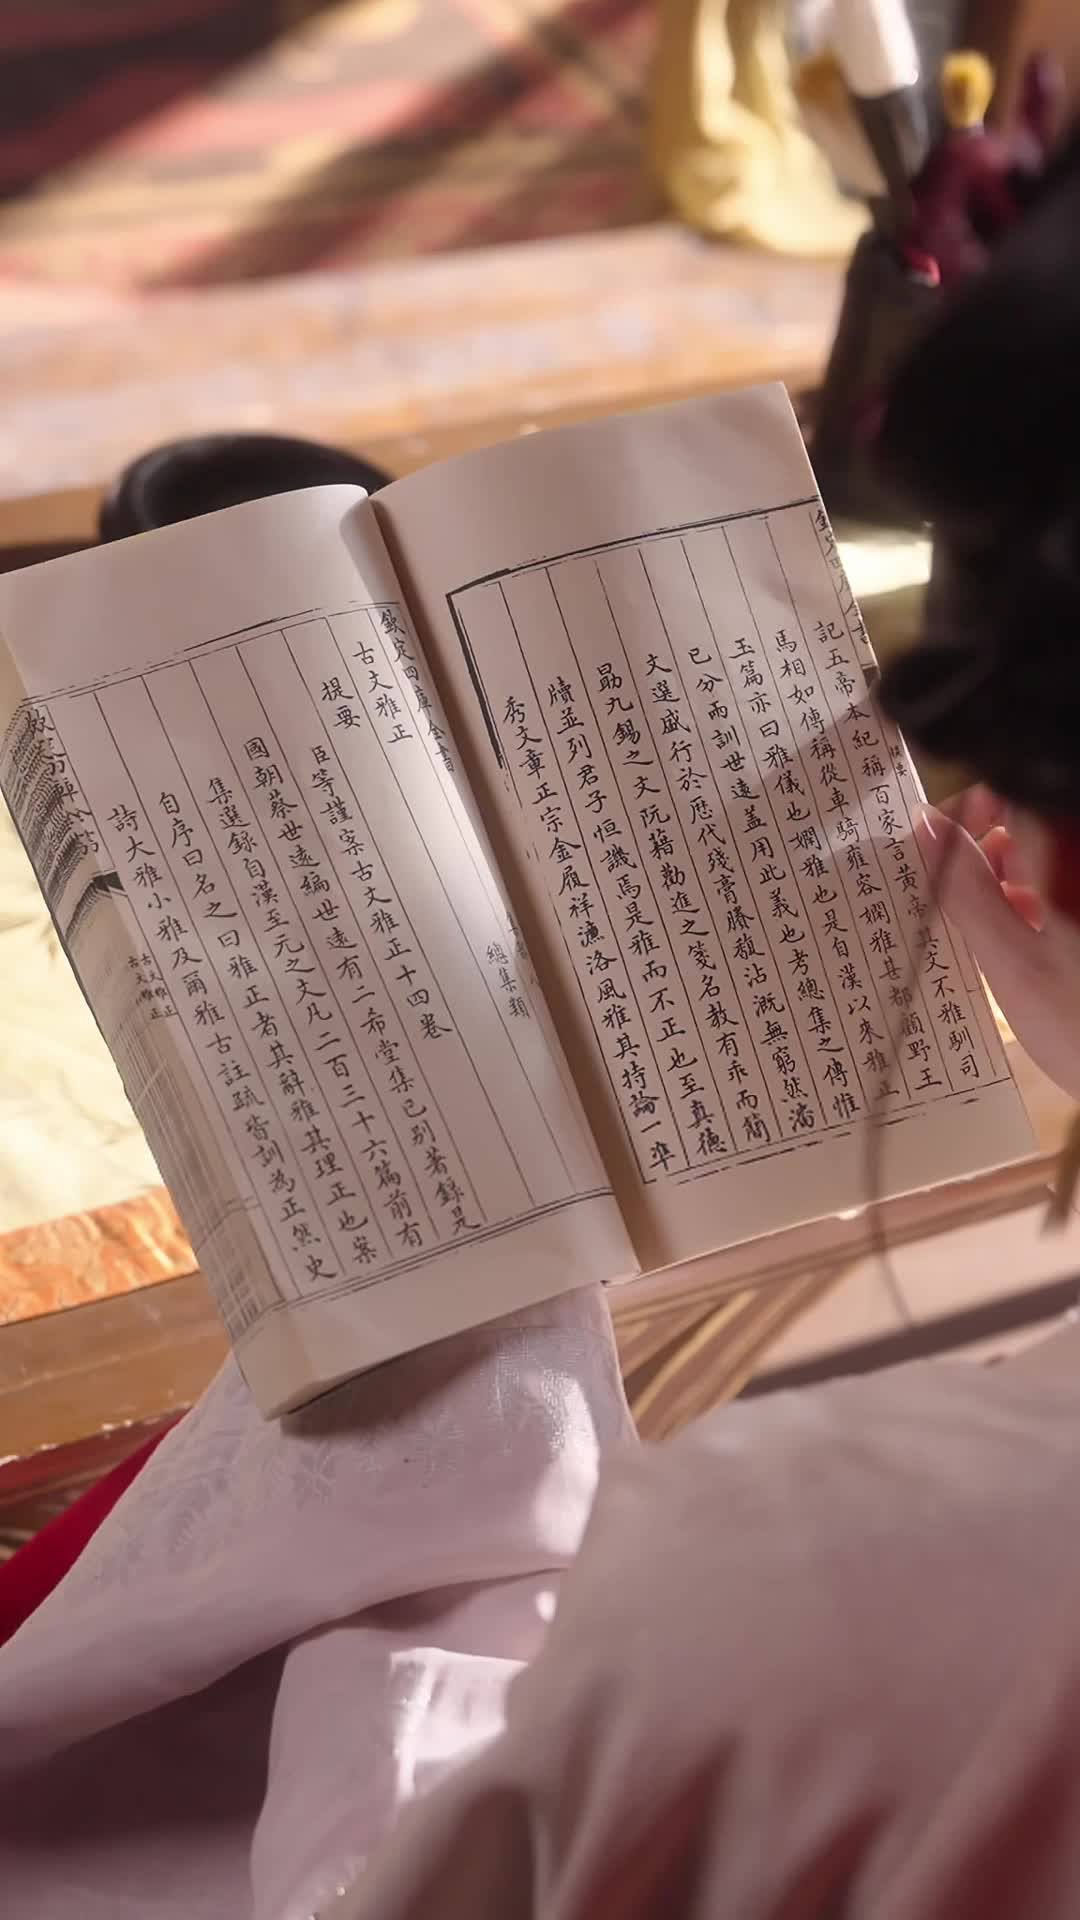 欽定四庫全書
古文雅正 總集類
提要
臣等謹案古文雅正十四卷
國朝蔡世遠編世遠有二希堂集已別著錄是
集選錄自漢至元之文凡二百三十六篇前有
自序曰名之曰雅正者其辭雅其理正也案
詩大雅小雅及爾雅古註疏皆訓為正然史
古文雅正
欽定四庫全書
提要
記五帝本紀稱百家言黃帝其文不雅馴司
馬相如傳稱從車騎雍容嫻雅甚都顧野王
玉篇亦曰雅儀也嫻雅也是自漢以來雅正
已分兩訓世遠蓋用此義也考總集之傳惟
文選盛行於歷代殘膏賸馥沾溉無窮然潘
勗九錫之文阮藉勸進之箋名教有乖而簡
牘並列君子恒譏焉是雅而不正也至真德
秀文章正宗金履祥濂洛風雅其持論一準